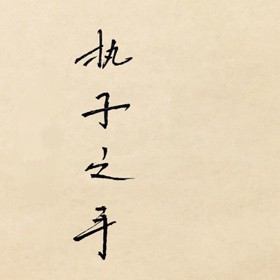 执子之手